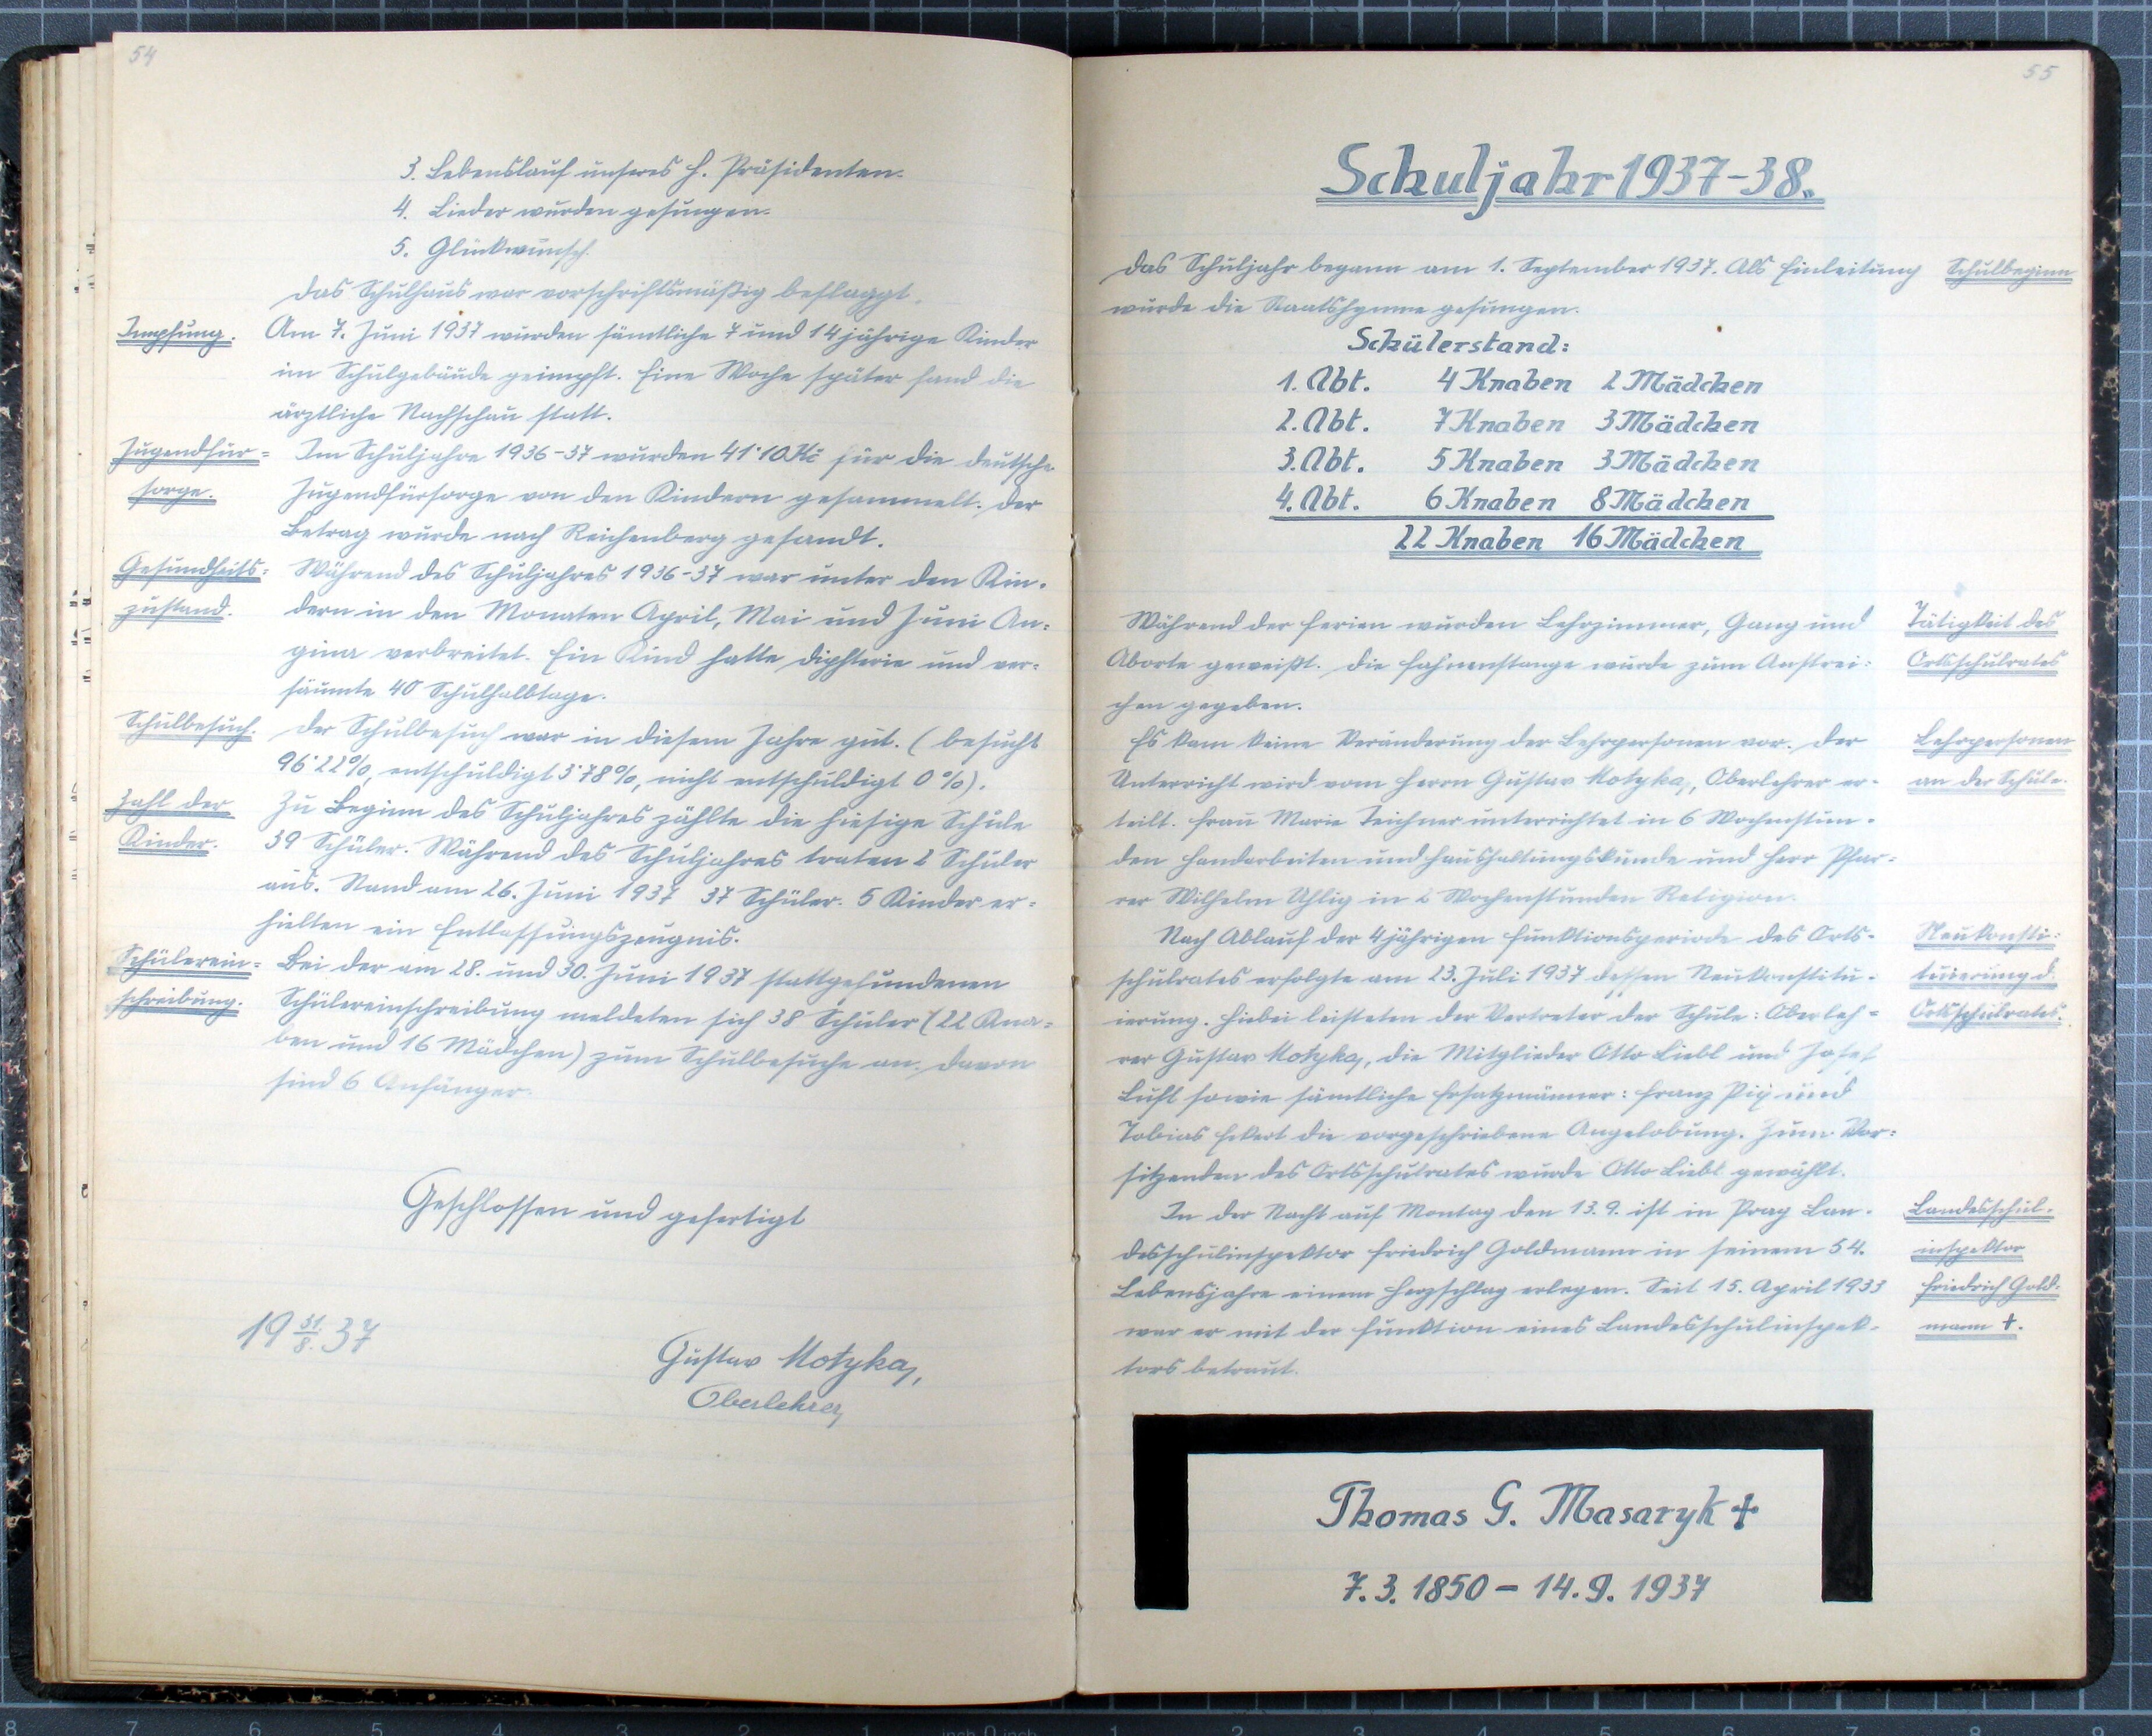 54
3. Lebenslauf unseres H. Präsidenten.
4. Lieder wurden gesungen.
5. Glückwunsch.
Das Schulhaus war vorschriftsmäßig beflaggt.
Impfung. Am 7. Juni 1937 wurden sämtliche 7 und 14 jährige Kinder
im Schulgebäude geimpft. Eine Woche später fand die
ärztliche Nachschau statt.
Jugendfür= Im Schuljahre 1936-37 wurden 41·10 Kč für die deutsche
sorge. Jugendfürsorge von den Kindern gesammelt. Der
Betrag wurde nach Reichenberg gesandt.
Gesundheits= Während des Schuljahres 1936-37 war unter den Kin=
zustand. dern in den Monaten April, Mai und Juni An=
gina verbreitet. Ein Kind hatte Diphterie und ver=
säumte 40 Schulhalbtage.
Schulbesuch. Der Schulbesuch war in diesem Jahre gut. (besucht
96·22%, entschuldigt 3·78%, nicht entschuldigt 0%).
Zahl der Zu Beginn des Schuljahres zählte die hiesige Schule
Kinder. 39 Schüler. Während des Schuljahres traten 2 Schüler
aus. Stand am 26. Juni 1937 37 Schüler. 5 Kinder er=
hielten ein Entlassungszeugnis.
Schülerein= Bei der am 28. und 30. Juni 1937 stattgefundenen
schreibung. Schülereinschreibung meldeten sich 38 Schüler (22 Kna=
ben und 16 Mädchen) zum Schulbesuche an. Davon
sind 6 Anfänger.
Geschlossen und gefertigt
19 31./8. 37
Gustav Motyka,
Oberlehrer
55
Schuljahr 1937-38.
Das Schuljahr begann am 1. September 1937. Als Einleitung Schulbeginn
wurde die Staatshymne gesungen.
Schülerstand:
1. Abt. 4 Knaben 2 Mädchen
2. Abt. 7 Knaben 3 Mädchen
3. Abt. 5 Knaben 3 Mädchen
4. Abt. 6 Knaben 8 Mädchen
22 Knaben 16 Mädchen
Während der Ferien wurden Lehrzimmer, Gang und Tätigkeit des
Aborte geweißt. Die Fahnenstange wurde zum Anstrei= Ortsschulrates
chen gegeben.
Es kam keine Veränderung der Lehrpersonen vor. Der Lehrpersonen
Unterricht wird vom Herrn Gustav Motyka, Oberlehrer er= an der Schule.
teilt. Frau Marie Teichner unterrichtet in 6 Wochenstun=
den Handarbeiten und Haushaltungskunde und Herr Pfar=
rer Wilhelm Uhlig in 2 Wochenstunden Religion.
Nach Ablauf der 4 jährigen Funktionsperiode des Orts= Neukonsti=
schulrates erfolgte am 23. Juli 1937 dessen Neukonstitu= tuierung d.
ierung. Hiebei leisteten der Vertreter der Schule: Oberleh= Ortsschulrates.
rer Gustav Motyka, die Mitglieder Otto Liebl und Josef
Luft sowie sämtliche Ersatzmänner: Franz und
Tobias Eckert die vorgeschriebene Angelobung. Zum Vor=
sitzenden des Ortsschulrates wurde Otto Liebl gewählt.
In der Nacht auf Montag den 13.9. ist in Prag Lan= Landesschul=
desschulinspektor Friedrich Goldmann in seinem 54. inspektor
Lebensjahre einem Herzschlag erlegen. Seit 15. April 1933 Friedrich Gold=
war er mit der Funktion eines Landesschulinspek= mann †.
tors betraut.
Thomas G. Masaryk †
7.3.1850 – 14.9.1937